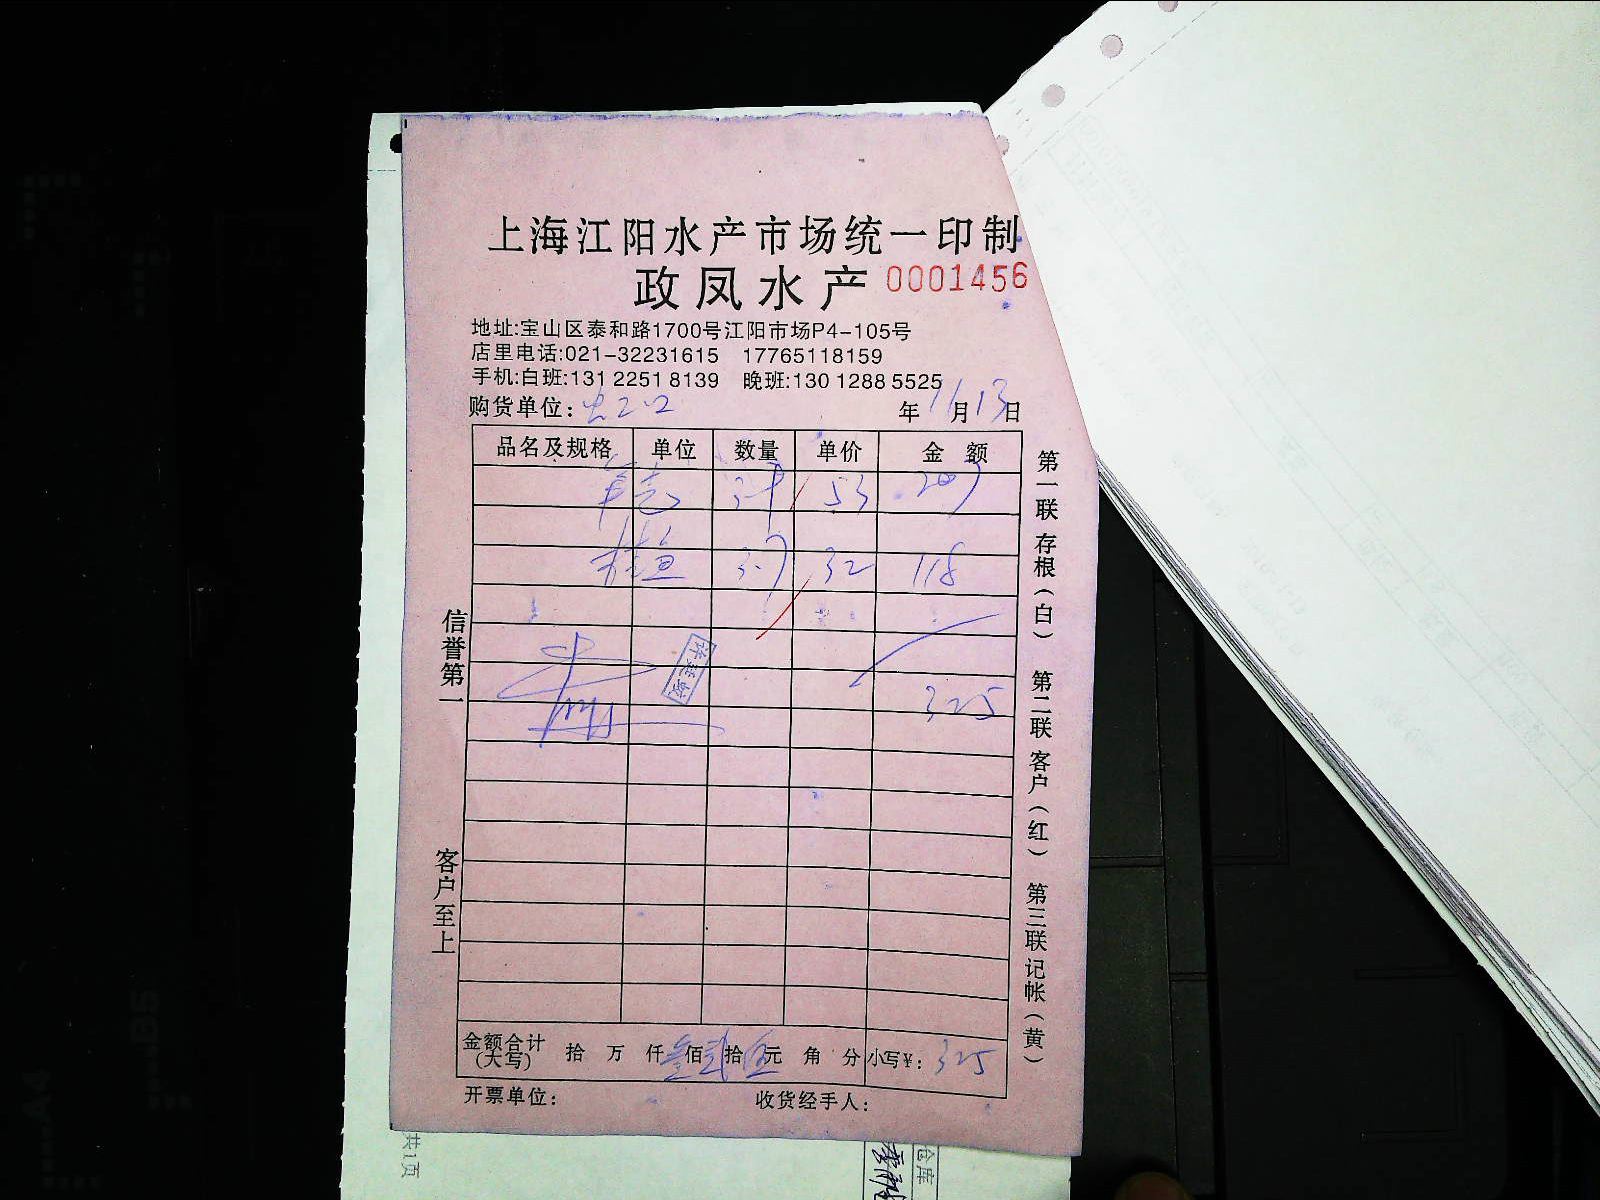 上海江阳水产市场统一印制
政凤水产 0001456
地址:宝山区泰和路1700号江阳市场P4-105号
店里电话:021-32231615 17765118159
手机:白班:131 2251 8139 晚班:130 1288 5525
购货单位:
年 11月13日
品名及规格 单位 数量 单价 金额
53 207
桂鱼 3.7 32 118
325
信誉第一
客户至上
第一联 存根(白) 第二联 客户(红) 第三联 记帐(黄)
金额合计(大写) 拾 万 仟 叁佰 贰拾 伍元 角 分 小写¥: 325
开票单位: 收货经手人:
共1页
仓库
A4
B5